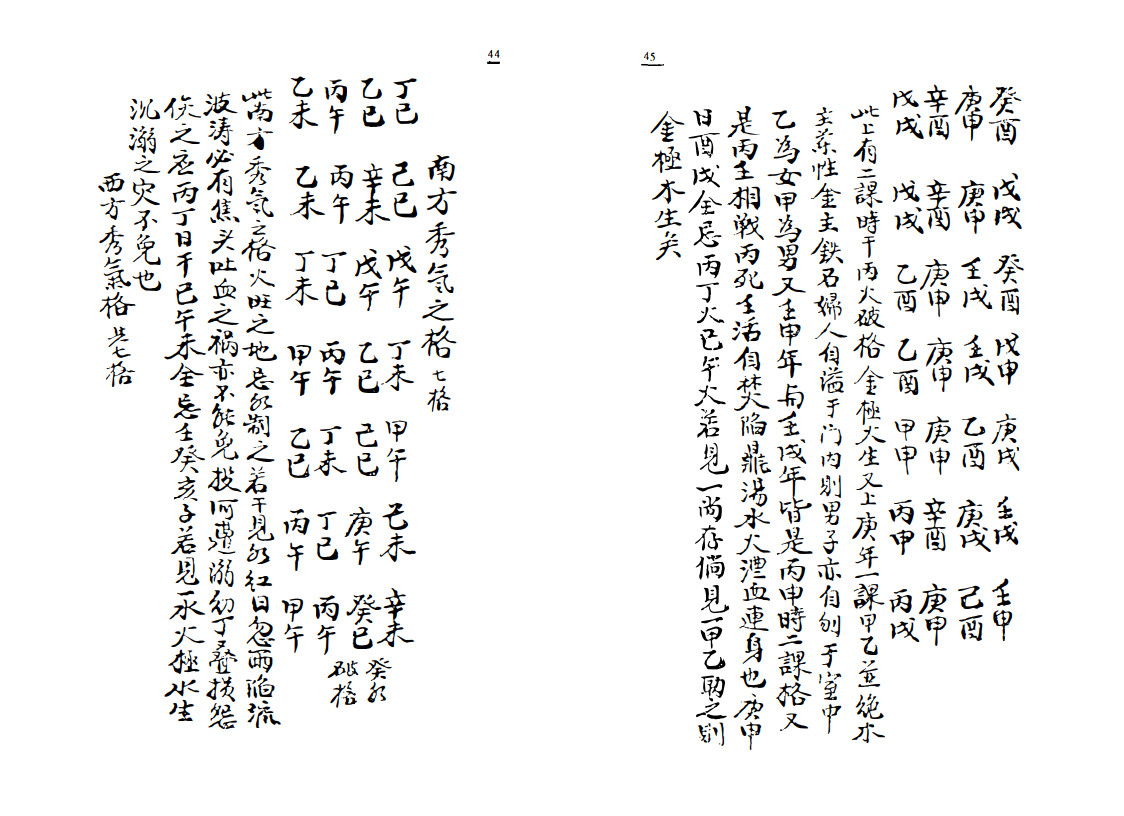 44
南方秀气之格 七格
丁巳 己巳 戊午 丁未 甲午 己未 辛未
乙巳 辛未 戊午 乙巳 己巳 庚午 癸巳 癸水
丙午 丙午 丁巳 丙午 丁未 丁巳 丙午 破格
乙未 乙未 丁未 甲午 乙巳 丙午 甲午
此南方秀气之格火旺之地忌水制之若干見水红日忽雨陷流
波涛必有焦头吐血之祸亦不能免投河遭溺幼丁叠损怨
侯之应丙丁日干巳午未全忌壬癸亥子若見一水火極水生
沉溺之灾不免也
西方秀氣格 共七格
45
癸酉 戊戌 癸酉 戊申 庚戌 壬戌 壬申
庚申 庚申 壬戌 壬戌 乙酉 庚戌 己酉
辛酉 辛酉 庚申 庚申 庚申 辛酉 庚申
戊戌 戊戌 乙酉 乙酉 甲申 丙申 丙戌
此上有二課時干丙火破格金極火生又上庚年一課甲乙並絶木
主性金主鉄石婦人自溢于门内則男子亦自刎于室中
乙為女甲為男又壬申年与壬戌年皆是丙申時二課格又
是丙壬相戦丙死壬活自焚陷鼎湯水火血連身也庚申
日酉戌全忌丙丁火巳午火若見一尚存倘見一甲乙助之則
金極木生矣